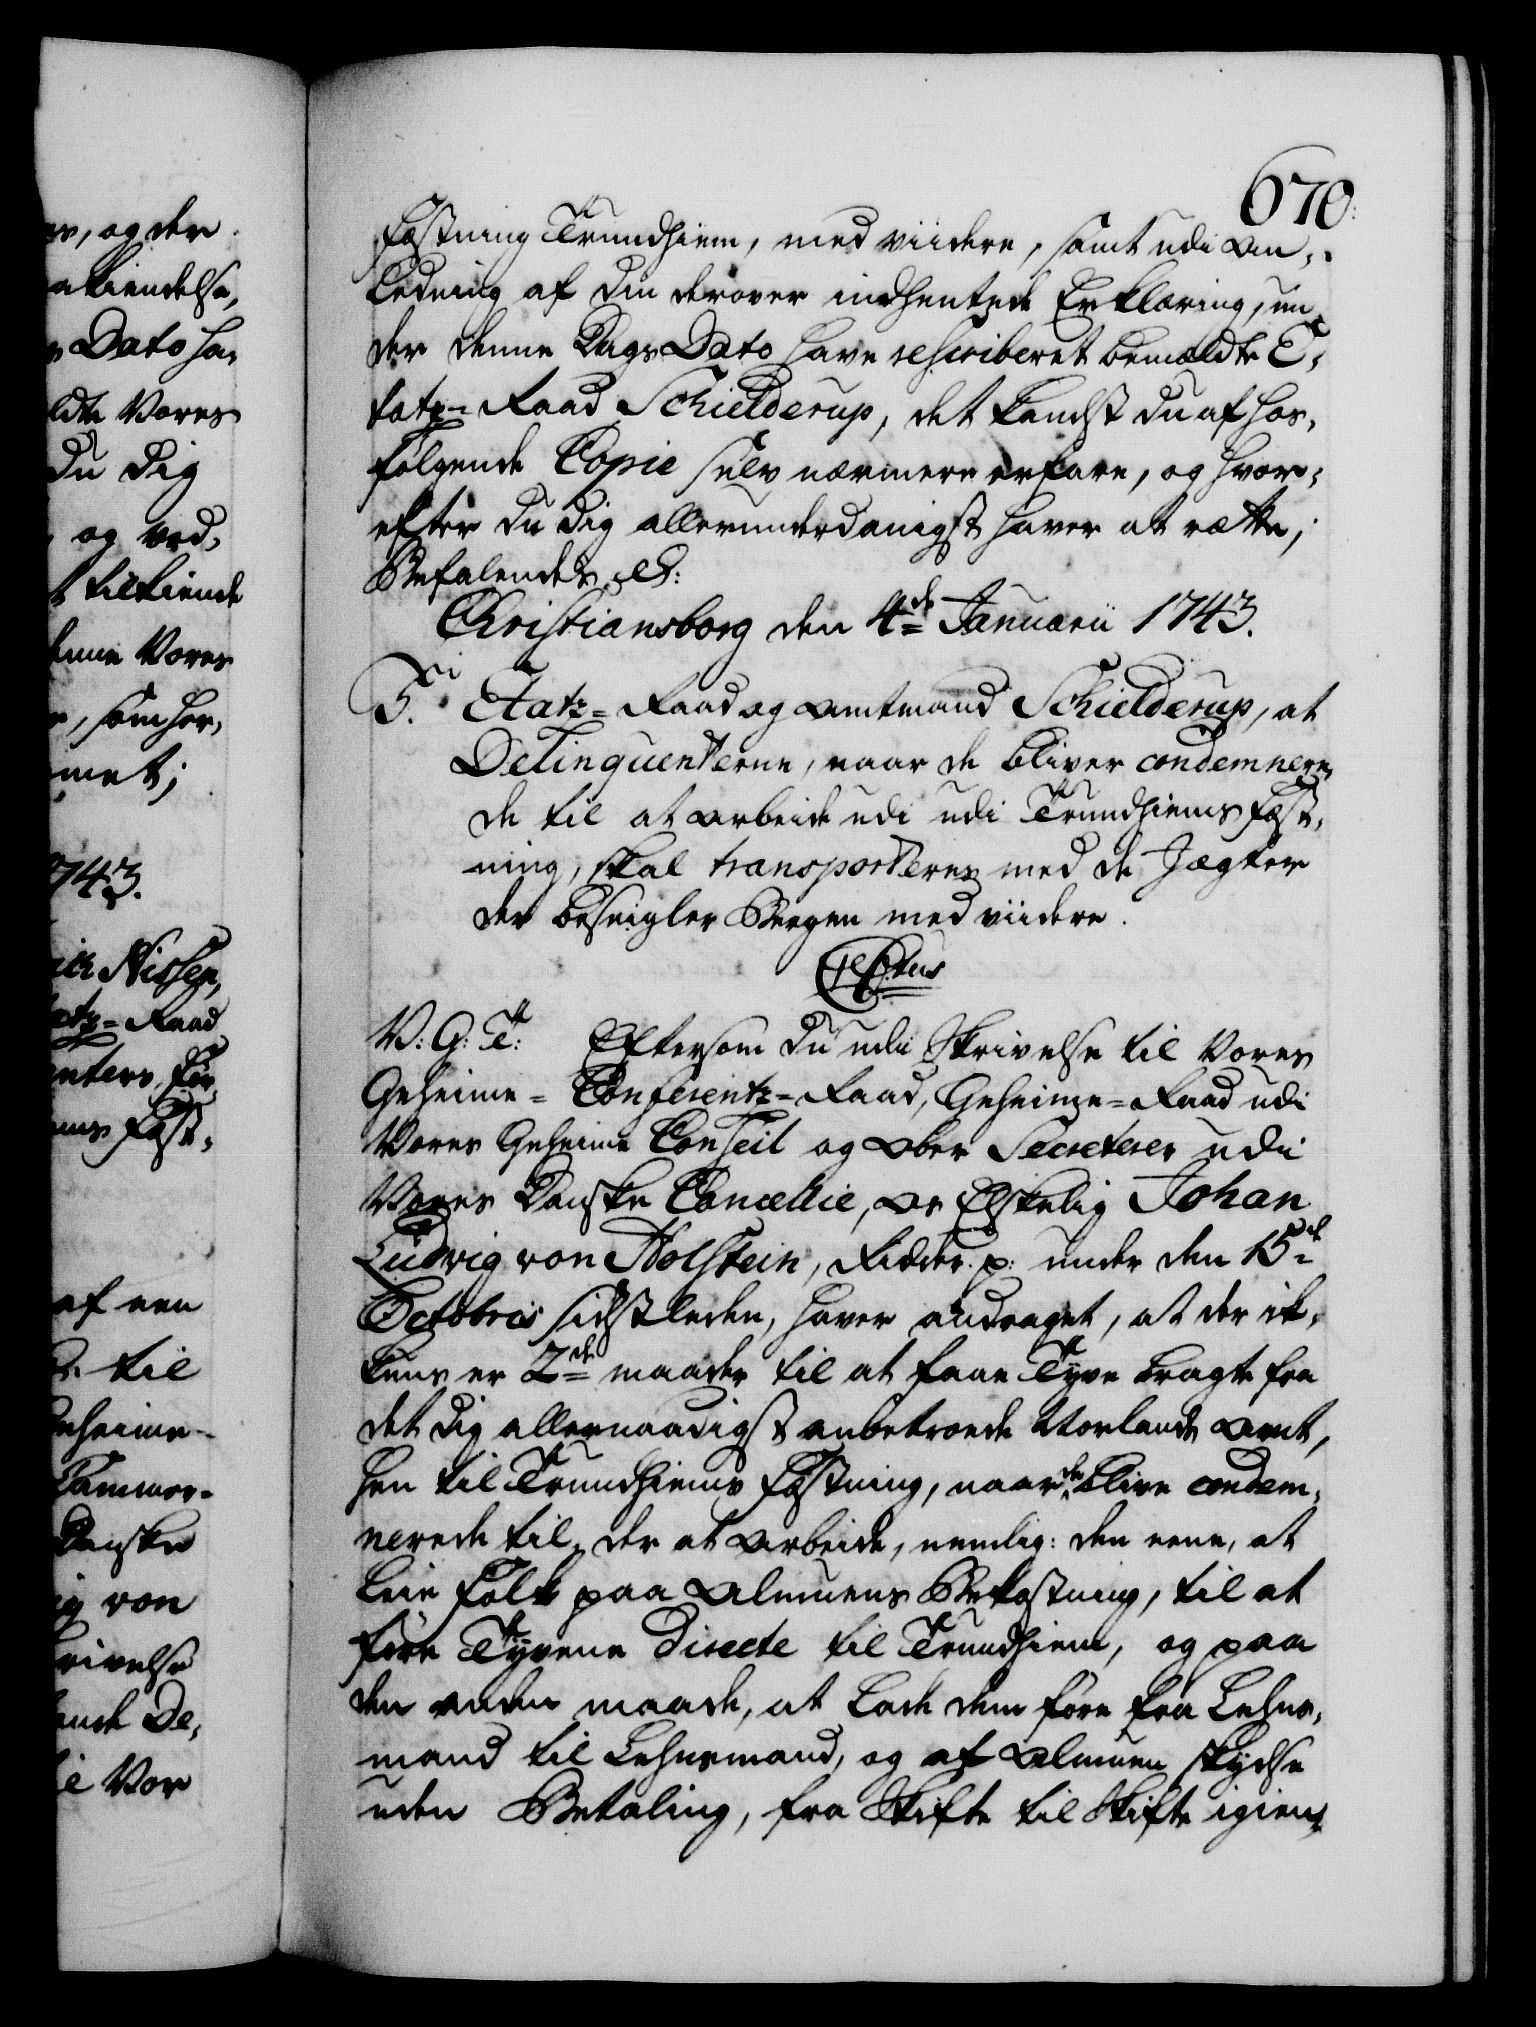 670.
ar, og der
atiendelse,
Dato ha-
ldte Vores
Du Dig
og ved-
t tilkiende
enne Vores
, som her-
met;
1743.
ich Nissen,
atz-Raad
enters, før-
ems Fæst-
af een
til
Geheime-
Cammer-
Danske
ig von
krivelse
ende De-
Vor
Fæstning Trundhiem, med viidere, samt udi An-
ledning af din derover indhentede Erklæring, un-
der denne Dags Dato have rescriberet bemældte E-
tatz-Raad Schielderup, det kandst du af hos-
følgende Copie selv nærmere erfare, og hvor-
efter du dig allerunderdanigst haver at rætte;
Befalendes etc:
Christiansborg den 4de Januarii 1743.
T. Etatz-Raad og Amtmand Schielderup, at
Delinquenterne, naar de bliver condemnere-
de til at arbeide udi udi Trundhiems Fæst-
ning, skal transporteres med de Jægter
der beseigler Bergen med viidere.
V: G: T: Eftersom du udi Skrivelse til Vores
Geheime-Conferentz-Raad, Geheime-Raad udi
Vores Geheime Conseil og Ober Secreterer udi
Vores Danske Cancellie, Os Elskelig Johan
Ludvig von Holstein, Ridder p: under den 15de
Octobris sidstleden, haver andraget, at der ik-
kuns er 2de maader til at faae Tyve bragte fra
det dig allernaadigst anbetroede Norlands Amt,
hen til Trundhiems Fæstning, naar de blive condem-
nerede til, der at arbeide, nemlig: den eene, at
leie Folk paa Almuens Bekostning, til at
føre Tyvene directe til Trundhiem, og paa
den anden maade, at lade dem føre fra Lehns-
mand til Lehnsmand, og af Almuen skydse
uden Betaling, fra Skifte til Skifte igien-